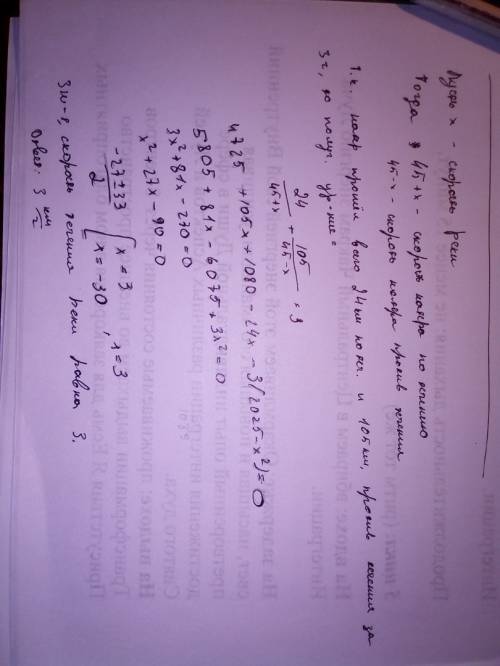 Пусть x - скорость реки
Тогда 45+x - скорость катера по течению
45-x - скорость катера против течения
Т.к. катер прошёл всего 24 км по теч. и 105 км, против течения за
3 ч, то получ. ур-ние:
24/(45+x) + 105/(45-x) = 3
4725 + 105x + 1080 - 24x - 3(2025 - x²) = 0
5805 + 81x - 6075 + 3x² = 0
3x² + 81x - 270 = 0
x² + 27x - 90 = 0
(-27 ± 33)/2 { x = 3
x = -30 , x = 3
скорость течения реки равна 3.
Ответ: 3 км/ч